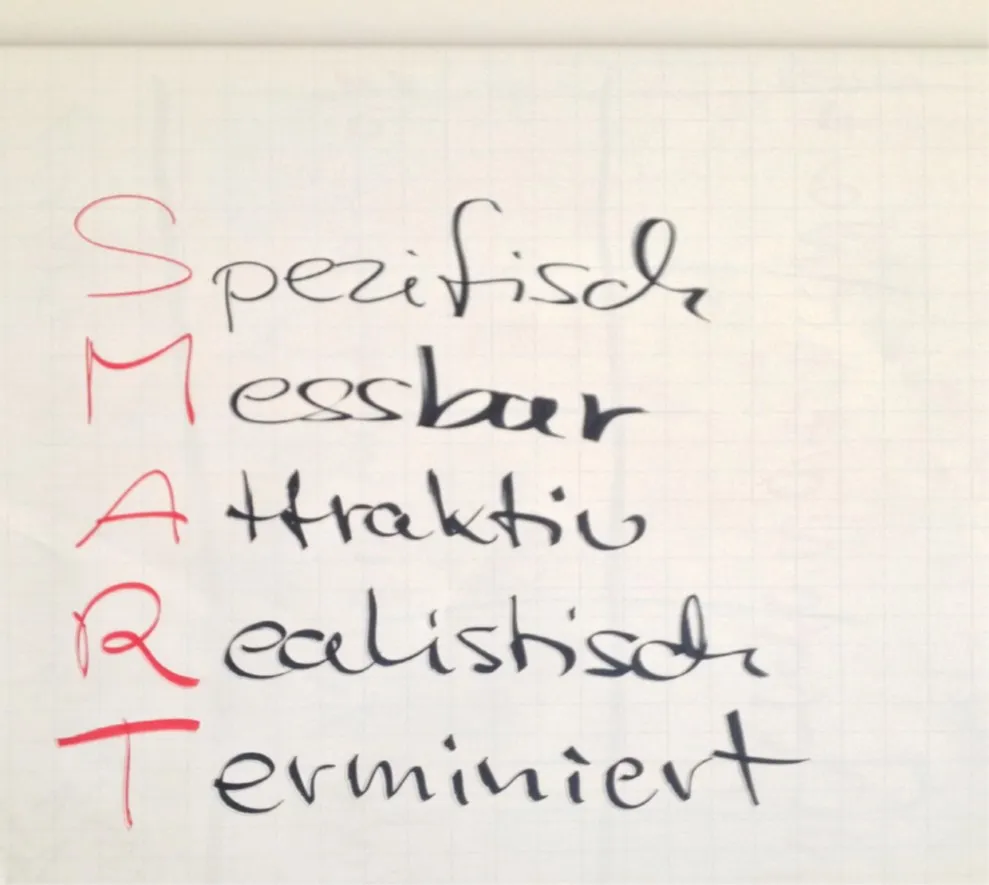 Spezifisch
Messbar
Attraktiv
Realistisch
Terminiert